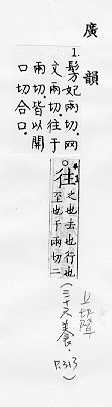 廣韻
1.髣妃兩切.网
文兩切.往于
兩切.皆以開
口切合口.
往 之也去也行也
至也于兩切二
(三十六養.
P.313)